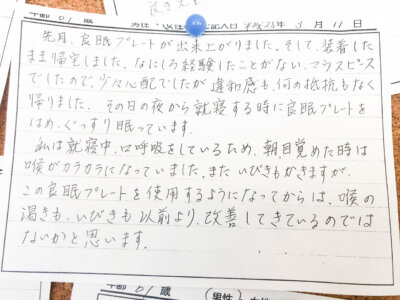 年齢 61 歳 男性・女性 記入日 平成23年 3月 11日
先月、良眠プレートが出来上がりました。そして、装着した
まま帰宅しました。なにしろ経験したことがないマウスピース
でしたので、少々心配でしたが違和感も、何の抵抗もなく
帰りました。その日の夜から就寝する時に良眠プレートを
はめ、ぐっすり眠っています。
私は就寝中、口呼吸をしているため、朝目覚めた時は
喉がカラカラになっていました。また いびきもかきますが、
この良眠プレートを使用するようになってからは、喉の
渇きも、いびきも以前より、改善してきているのでは
ないかと思います。
年齢 61 歳 (男性)